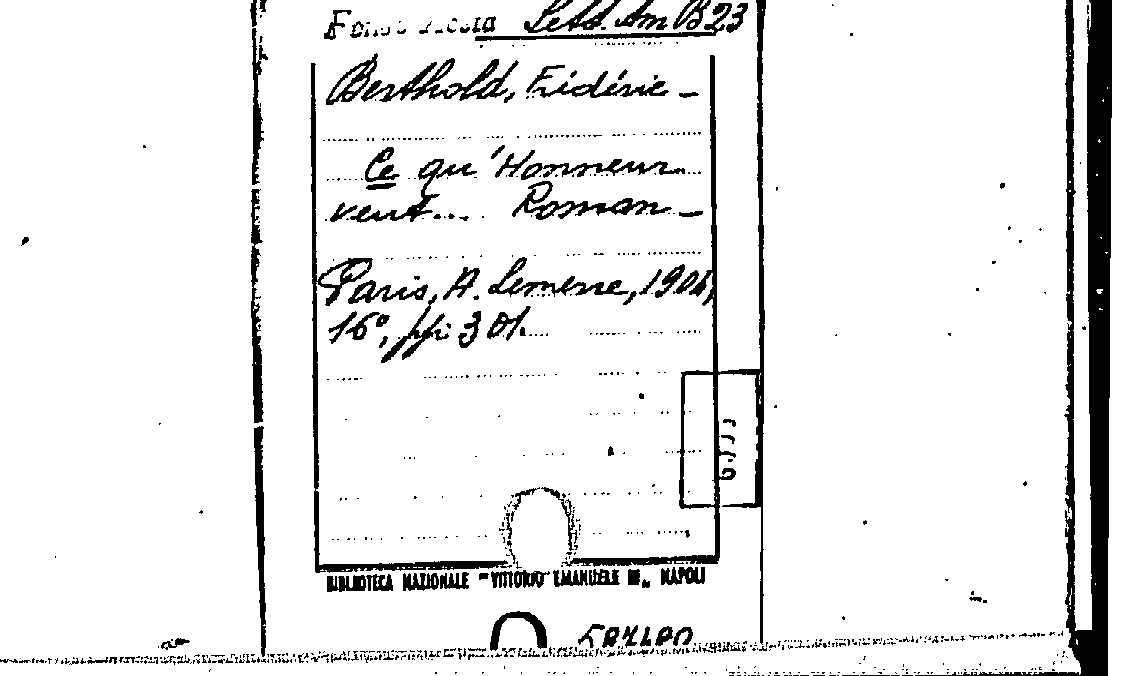 Fondo Lett. Am B23
Berthold, Frédéric –
Ce qu'Honneur
veut... Roman –
Paris, A. Lemerre, 1904,
16°, pp. 301.
BIBLIOTECA NAZIONALE "VITTORIO EMANUELE III„ NAPOLI